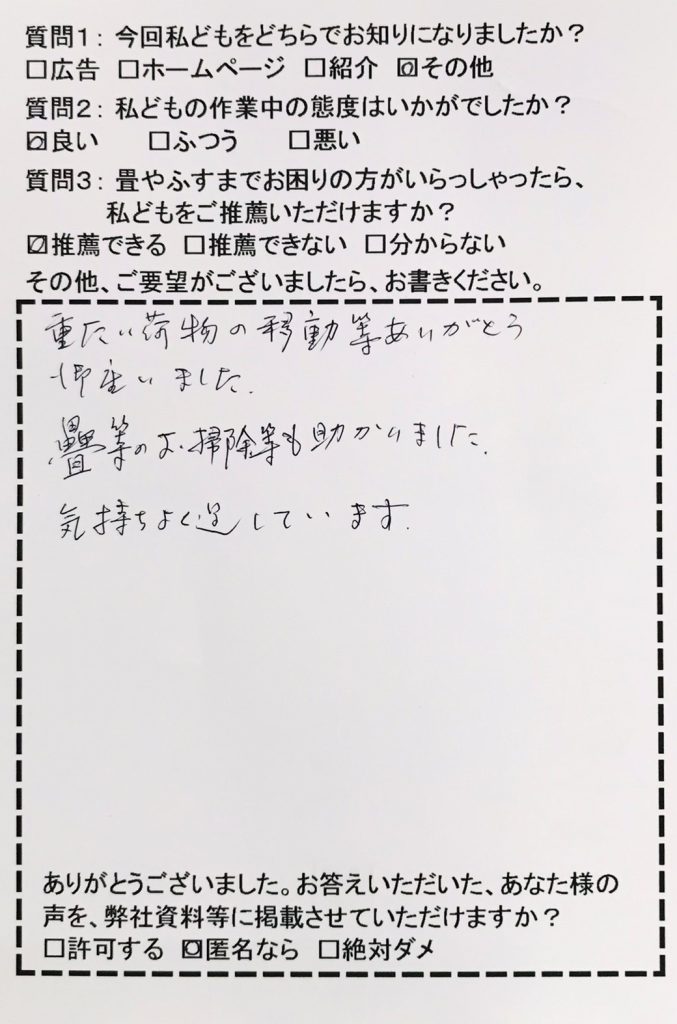 質問1：今回私どもをどちらでお知りになりましたか？
□広告 □ホームページ □紹介 ☑その他
質問2：私どもの作業中の態度はいかがでしたか？
☑良い □ふつう □悪い
質問3：畳やふすまでお困りの方がいらっしゃったら、
私どもをご推薦いただけますか？
☑推薦できる □推薦できない □分からない
その他、ご要望がございましたら、お書きください。
重たい荷物の移動等ありがとう
御座いました。
疊等のお掃除等も助かりました。
気持ちよく過しています。
ありがとうございました。お答えいただいた、あなた様の
声を、弊社資料等に掲載させていただけますか？
□許可する ☑匿名なら □絶対ダメ